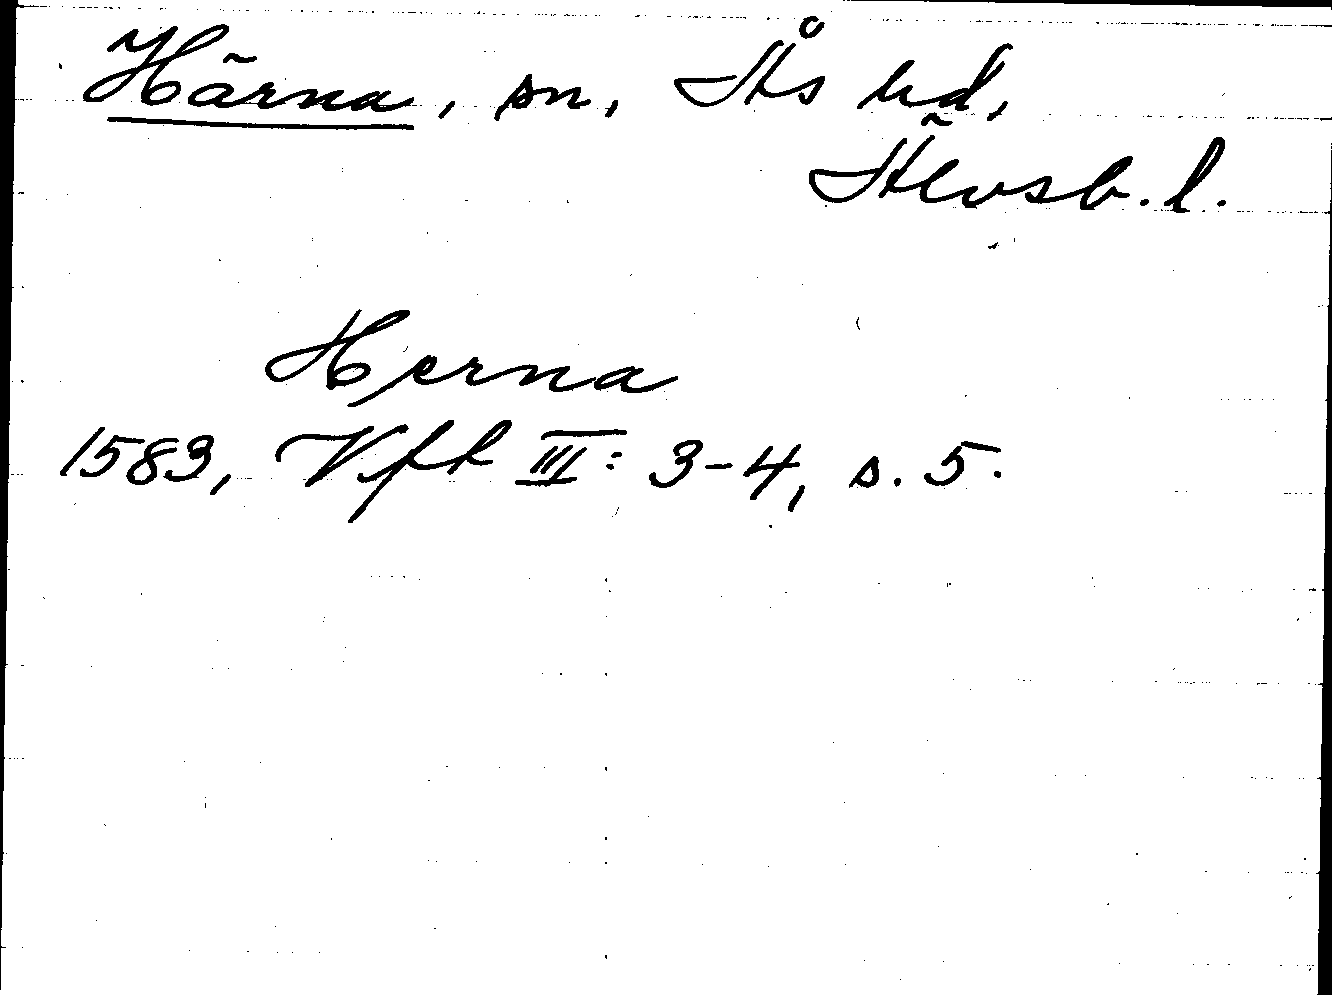 Härna, sn, Ås hd,
Älvsb. l.
Herna
1583, Vft III: 3-4, s. 5.